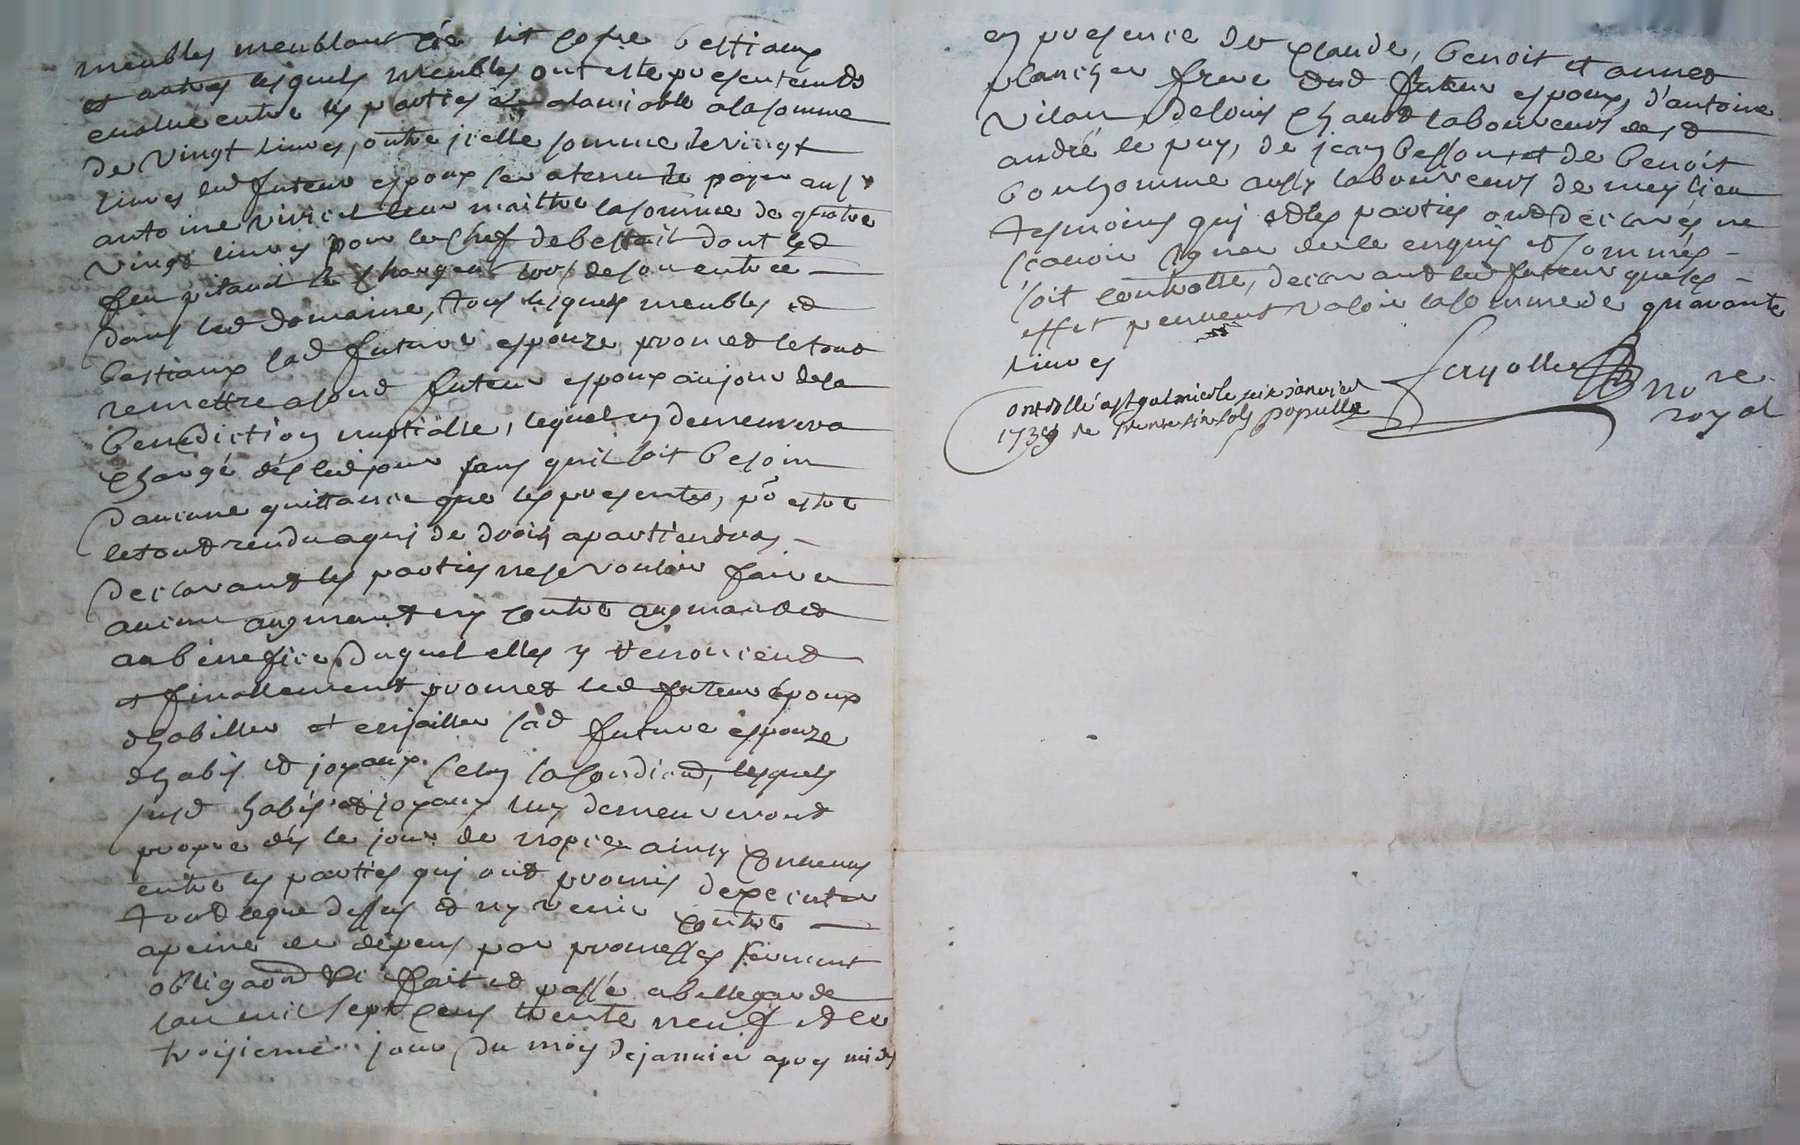 meubles meublant lit cofre bestiaux
et autres lesquels meubles ont esté
evalué entre les parties a lamiable a la somme
de vingt livres, outre jcelle somme de vingt
livres led futeur espoux sera tenu de payer
antoine leur maittre la somme de quatre
vingt livres pour le chef de bestail dont led
feu de son entrée
dans led domaine, tous lesquels meubles et
bestiaux lad future espouze promet le tout
remettre aud futeur espoux au jour de la
benediction nuptialle, lequel en demeurera
chargé dés led jour sans quil soit besoin
daucune quittance que les presentes, pr estre
le tout rendu a quj de droit apartiendra
declarant les parties ne se vouloir faire
aucun augment ny contre augment et
au bénefice duquel elles y renoncent
et finallement promet led futeur époux
dhabiller et enjailler lad future espouze
dhabis et joyaux selon sa condition, lesquels
susd habis et joyaux luy demeureront
propre dés le jour de nopces ainsy convenu
entre les parties quj ont promis dexecuter
tout ceque dessus et ny venir contre
a peine de dépens par promesses serment
obligaon &c fait et passé a bellegarde
lan mil sept cens trente neuf et le
troisieme jour du mois de janvier apres midy
en presence de claude, benoit et annet
plancher frere dud futeur espoux, d'antoine
vilars de louis laboureurs de st
andré le puy, de jean et de benoit
bonhomme aussy laboureurs de meylieu
tesmoins quj et les parties ont déclarés ne
scavoir signer de ce enquis et sommés
soit controllé, declarant led futeur que ses
effet peuvent valoir la somme de quarante
livres
no re
royal
controllé a st galmier le six janvier
1739 Re trente six sols populle